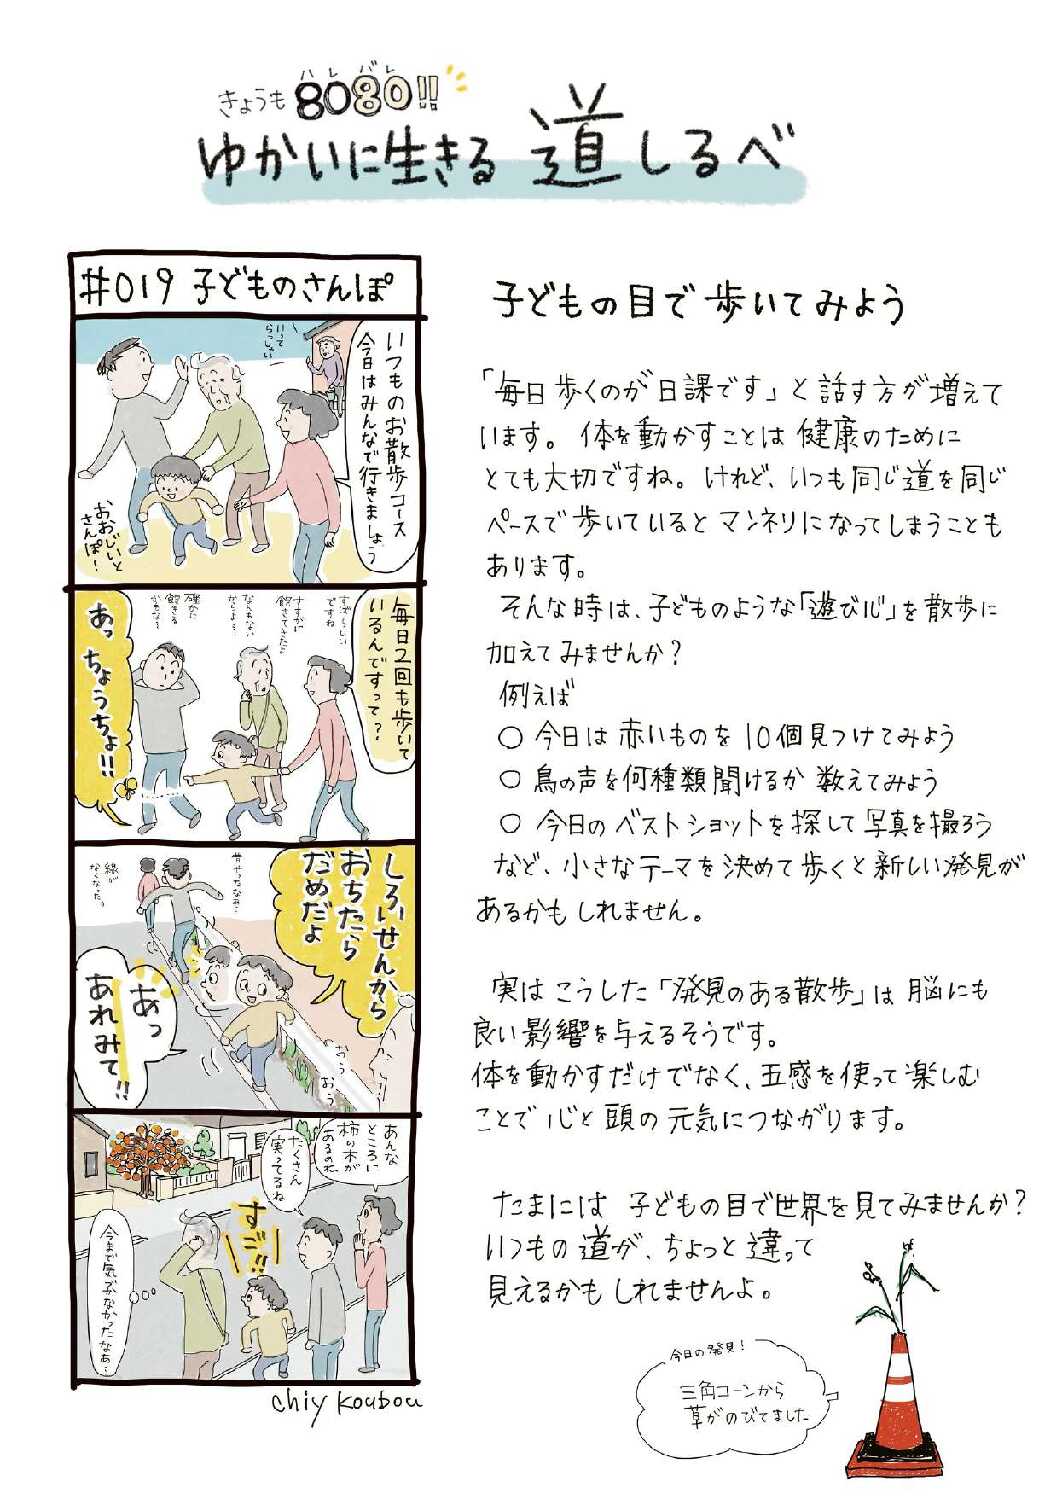 ハレバレ
きょうも8080!!
ゆかいに生きる道しるべ
#019 子どものさんぽ
いつものお散歩コース
今日はみんなで行きましょう
いって
らっしゃい
おおじいと
さんぽ!
毎日2回も歩いて
いるんですって?
すばらしい
ですね
ナオが
飽きてきた…
なんもない
からよ…
確かに
飽きる
かもな?
あっ ちょうちょ!!
しろいせんから
おちたら
だめだよ
昔やったなぁ…
縁が
なくなった。
おっう
おう
あっ
あれみて!!
あんな
ところに
柿の木が
あるのね
たくさん
実ってるね
すご!!
今まで気づかなかったなぁ…
chiy koubou
子どもの目で歩いてみよう
「毎日歩くのが日課です」と話す方が増えて
います。体を動かすことは健康のために
とても大切ですね。けれど、いつも同じ道を同じ
ペースで歩いているとマンネリになってしまうことも
あります。
そんな時は、子どものような「遊び心」を散歩に
加えてみませんか?
例えば
○ 今日は赤いものを10個見つけてみよう
○ 鳥の声を何種類聞けるか数えてみよう
○ 今日のベストショットを探して写真を撮ろう
など、小さなテーマを決めて歩くと新しい発見が
あるかもしれません。
実はこうした「発見のある散歩」は脳にも
良い影響を与えるそうです。
体を動かすだけでなく、五感を使って楽しむ
ことで心と頭の元気につながります。
たまには子どもの目で世界を見てみませんか?
いつもの道が、ちょっと違って
見えるかもしれませんよ。
今日の発見!
三角コーンから
草がのびてました